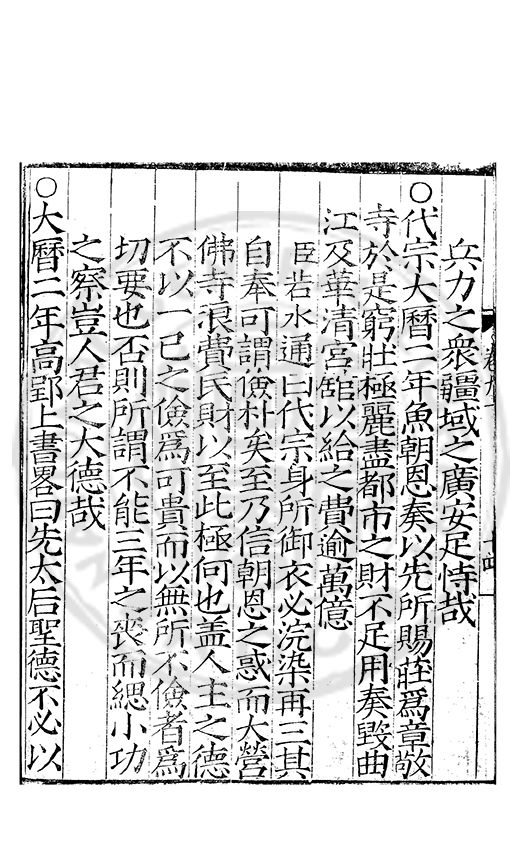 兵力之衆疆域之廣安足恃哉
○代宗大曆二年魚朝恩奏以先所賜莊爲章敬
寺於是窮壯極麗盡都市之財不足用奏毀曲
江及華清宮舘以給之費逾萬億
臣若水通曰代宗身所御衣必浣染再三其
自奉可謂儉朴矣至乃信朝恩之惑而大營
佛寺浪費民財以至此極何也盖人主之德
不以一已之儉爲可貴而以無所不儉者爲
切要也否則所謂不能三年之喪而緦小功
之察豈人君之大德哉
○大曆二年高郢上書畧曰先太后聖德不必以